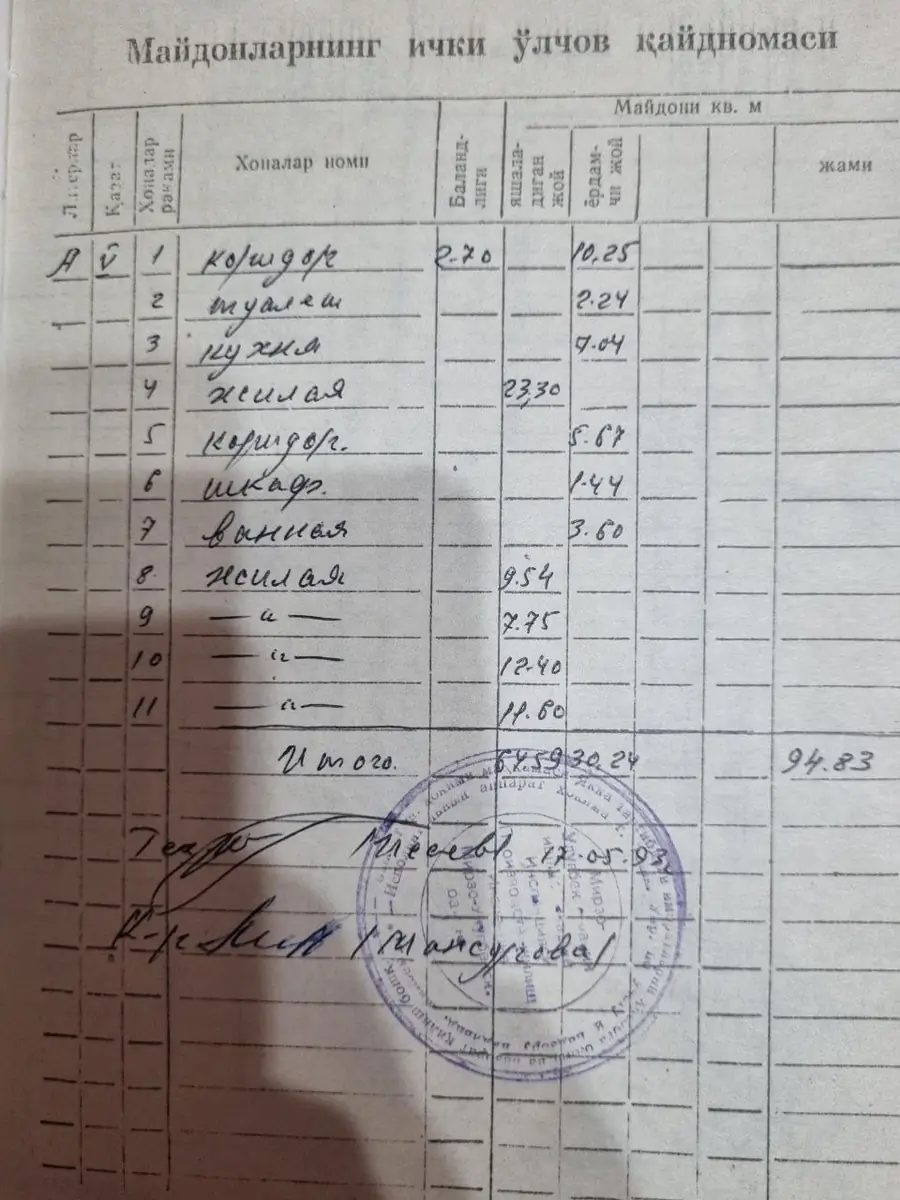 Майдонларнинг ички ўлчов қайдномаси
Литерлар Қават Хоналар рақами Хоналар номи Баландлиги Майдони кв. м яшаладиган жой ёрдамчи жой жами
А V 1 коридор 2.70 10.25
2 туалет 2.24
3 кухня 7.04
4 жилая 23,30
5 коридор. 5.67
6 шкаф. 1.44
7 ванная 3.60
8 жилая 9.54
9 — " — 7.75
10 — " — 12.40
11 — " — 11.60
Итого. 64.59 30.24 94.83
17.05.93
(Мансурова)